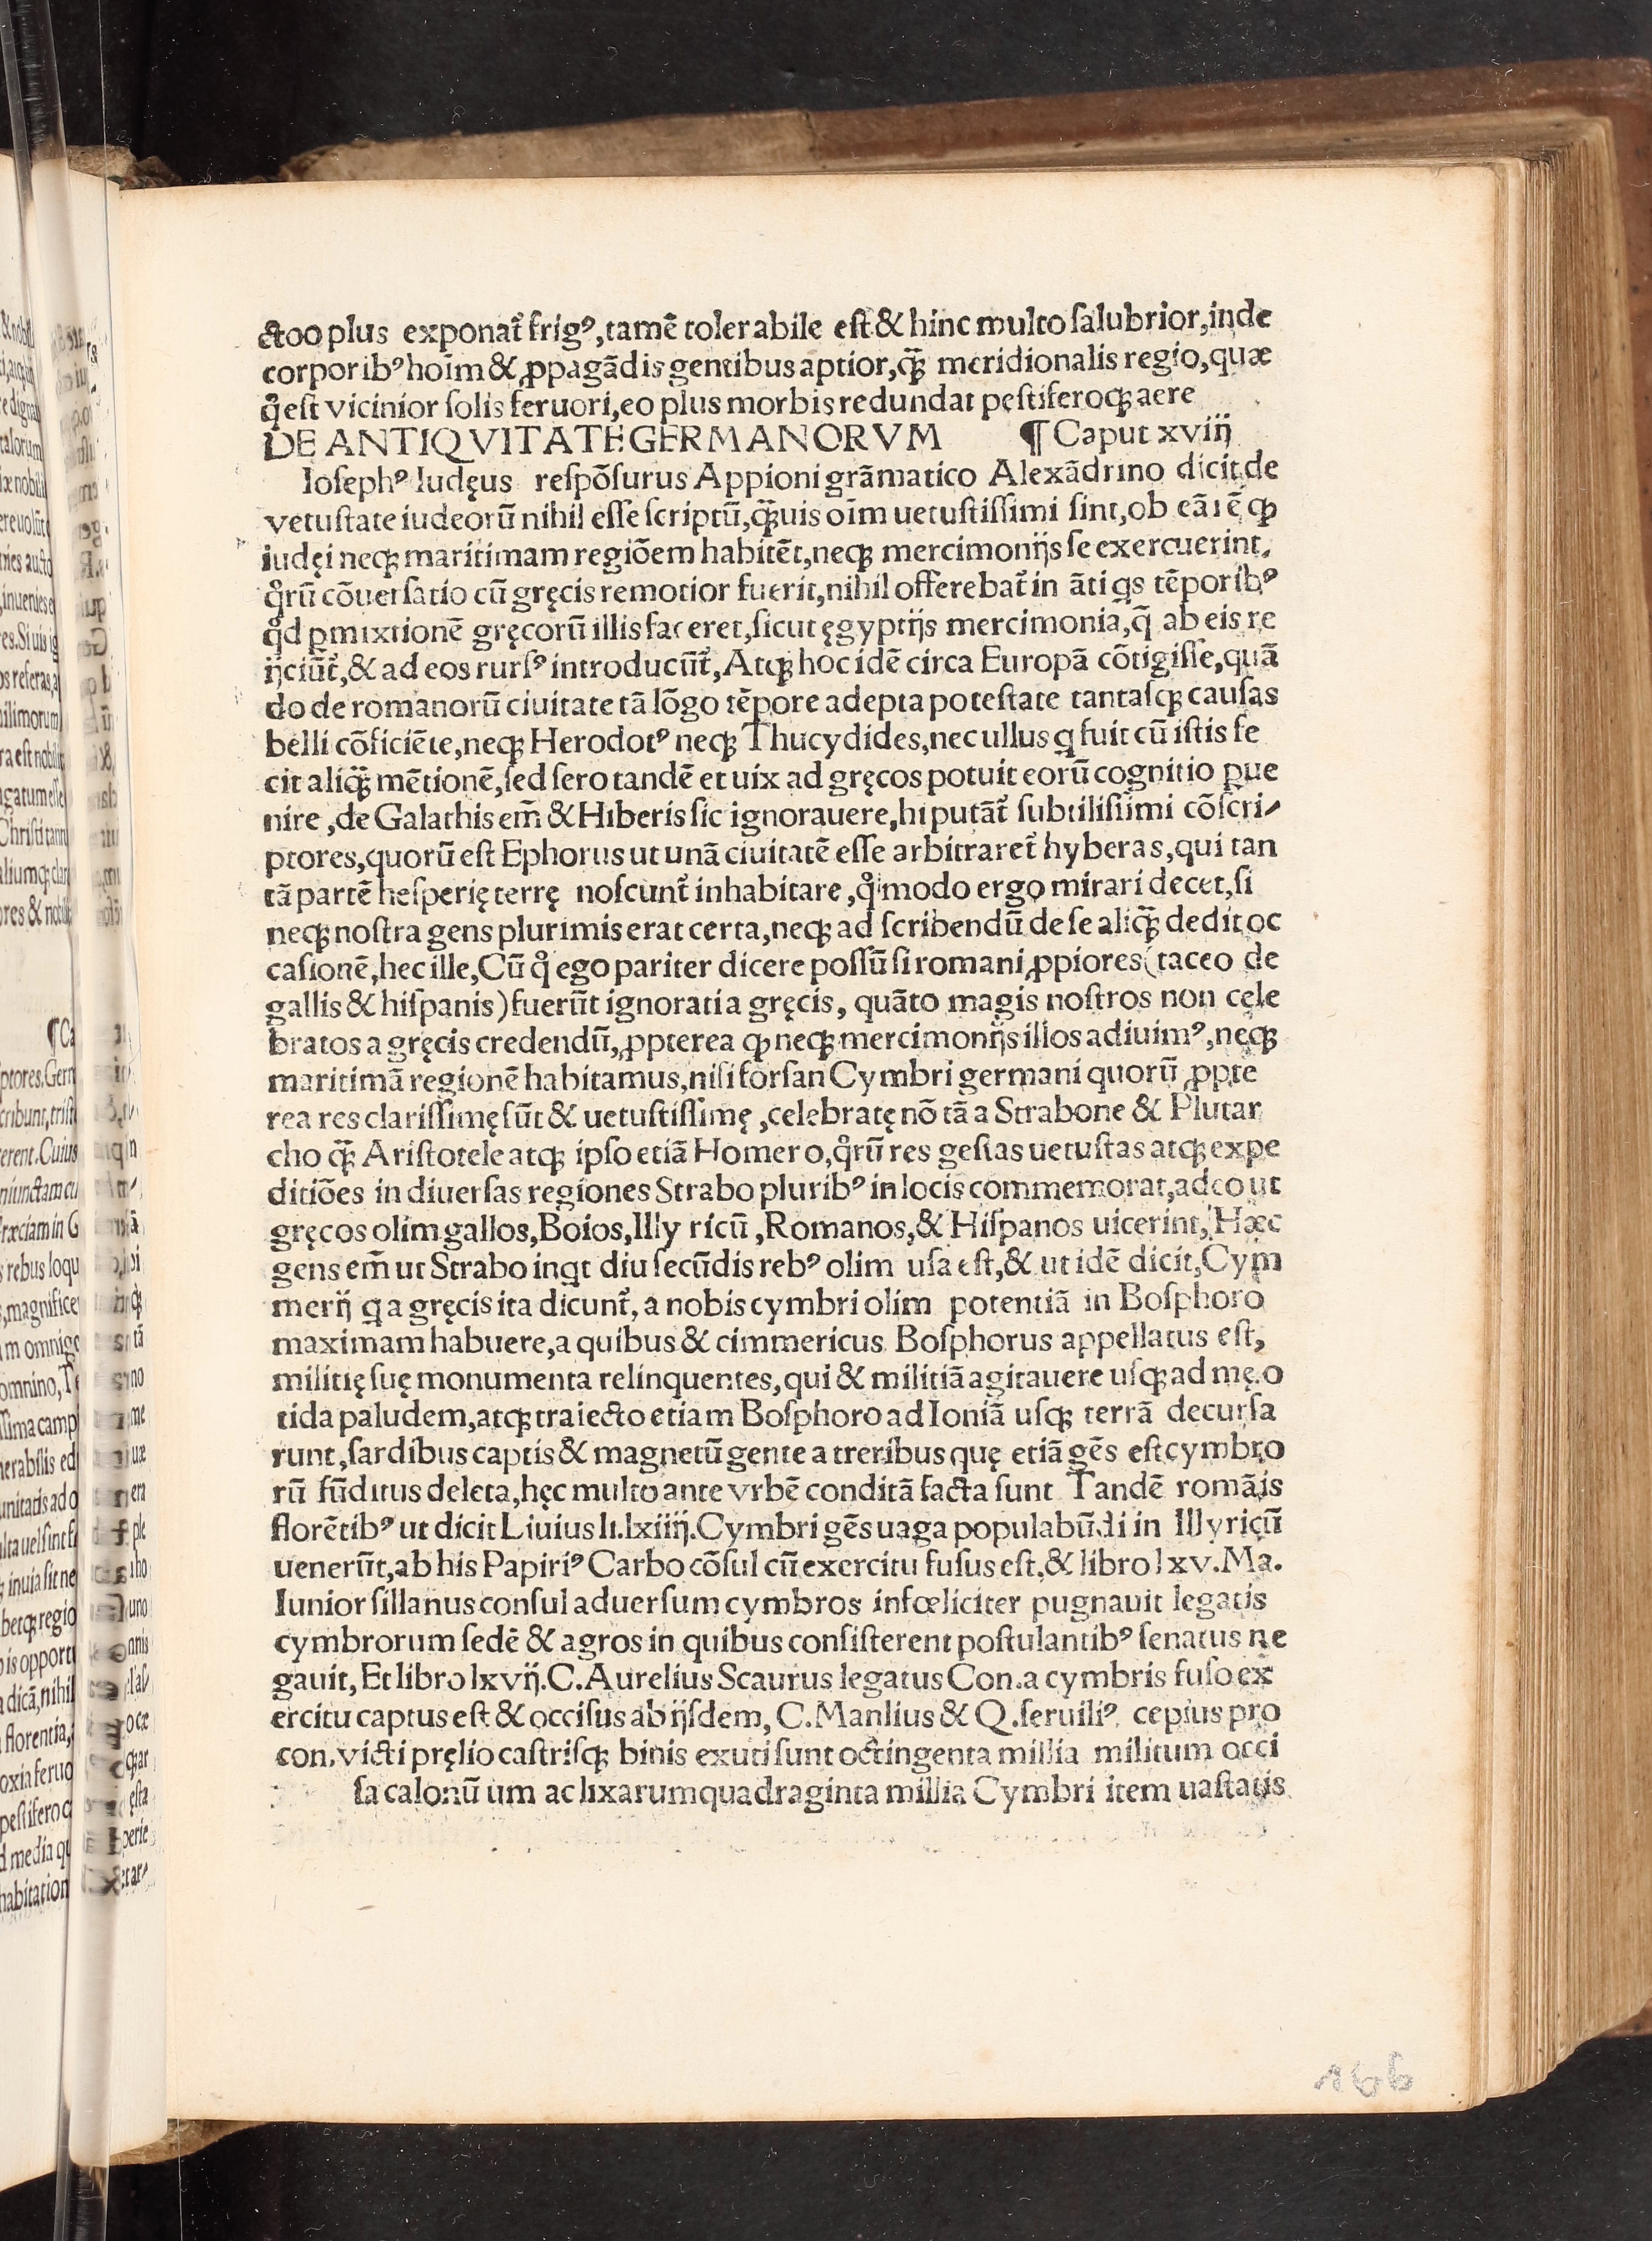 ctoo plus exponat᷑ frigꝰ, tamē tolerabile est & hinc multo salubrior, inde
corporibꝰ hoīm & ꝓpagādis gentibus aptior, ꝗ̄ meridionalis regio, quæ
qͦ est vicinior solis feruori, eo plus morbis redundat pestiferoqꝫ aere
DE ANTIQVITATE GERMANORVM ¶ Caput xviij
Iosephꝰ Iudęus respōsurus Appioni grāmatico Alexādrino dicit, de
vetustate iudeorū nihil esse scriptū, ꝗ̄uis oīm uetustissimi sint, ob eā ı ē ꝙ
iudęi neqꝫ maritimam regiōem habitēt, neqꝫ mercimonijs se exercuerint,
qͦrū cōuersatio cū gręcis remotior fuerit, nihil offerebat᷑ in āti qs tēporibꝰ
qͦd ꝑmixtionē gręcorū illis faceret, sicut ęgyptijs mercimonia, q̄ ab eis re
ijciūt᷑, & ad eos rursꝰ introducūt᷑, Atqꝫ hoc idē circa Europā cōtigisse, quā
do de romanorū ciuitate tā lōgo tēpore adepta potestate tantasqꝫ causas
belli cōficiēte, neqꝫ Herodotꝰ neqꝫ Thucydides, nec ullus q fuit cū istis fe
cit aliꝗ̄ mētionē, sed sero tandē et uix ad gręcos potuit eorū cognitio ꝑue
nire, de Galathis em̄ & Hiberis sic ignorauere, hi putāt᷑ subtilissimi cōscri-
ptores, quorū est Ephorus ut unā ciuitatē esse arbitraret᷑ hyberas, qui tan
tā partē hesperię terrę noscunt᷑ inhabitare, qͦmodo ergo mirari decet, si
neqꝫ nostra gens plurimis erat certa, neqꝫ ad scribendū de se aliꝗ̄ dedit oc
casionē, hec ille, Cū qͦ ego pariter dicere possū si romani ꝓpiores (taceo de
gallis & hispanis) fuerūt ignorati a gręcis, quāto magis nostros non cele
bratos a gręcis credendū, ꝓpterea ꝙ neqꝫ mercimonijs illos adiuimꝰ, neqꝫ
maritimā regionē habitamus, nisi forsan Cymbri germani quorū ꝓpte
rea res clarissimę sūt & uetustissimę, celebratę nō tā a Strabone & Plutar
cho ꝗ̄ Aristotele atqꝫ ipso etiā Homero, qͦrū res gestas uetustas atqꝫ expe
ditiōes in diuersas regiones Strabo pluribꝰ in locis commemorat, adeo ut
gręcos olim gallos, Boios, Illy ricū, Romanos, & Hispanos uicerint, Hæc
gens em̄ ut Strabo inqt diu secūdis rebꝰ olim usa est, & ut idē dicit, Cym
merij q a gręcis ita dicunt᷑, a nobis cymbri olim potentiā in Bosphoro
maximam habuere, a quibus & cimmericus Bosphorus appellatus est,
militię suę monumenta relinquentes, qui & militiā agitauere usqꝫ ad mę.o
tida paludem, atqꝫ traiecto etiam Bosphoro ad Ioniā usqꝫ terrā decursa
runt, sardibus captis & magnetū gente a treribus quę etiā gēs est cymbro
rū fūditus deleta, hęc multo ante vrbē conditā facta sunt Tandē romāis
florētibꝰ ut dicit Liuius li. lxiiij. Cymbri gēs uaga populabūdi in Illyricū
uenerūt, ab his Papiriꝰ Carbo cōsul cū exercitu fusus est, & libro lxv. Ma.
Iunior sillanus consul aduersum cymbros infœliciter pugnauit legatis
cymbrorum sedē & agros in quibus consisterent postulantibꝰ senatus ne
gauit, Et libro lxvij. C. Aurelius Scaurus legatus Con. a cymbris fuso ex
ercitu captus est & occisus ab ijsdem, C. Manlius & Q. seruiliꝰ cepius pro
con. victi pręlio castrisqꝫ binis exuti sunt octingenta millia militum occi
sa calonū um ac lixarum quadraginta millia Cymbri item uastatis
166